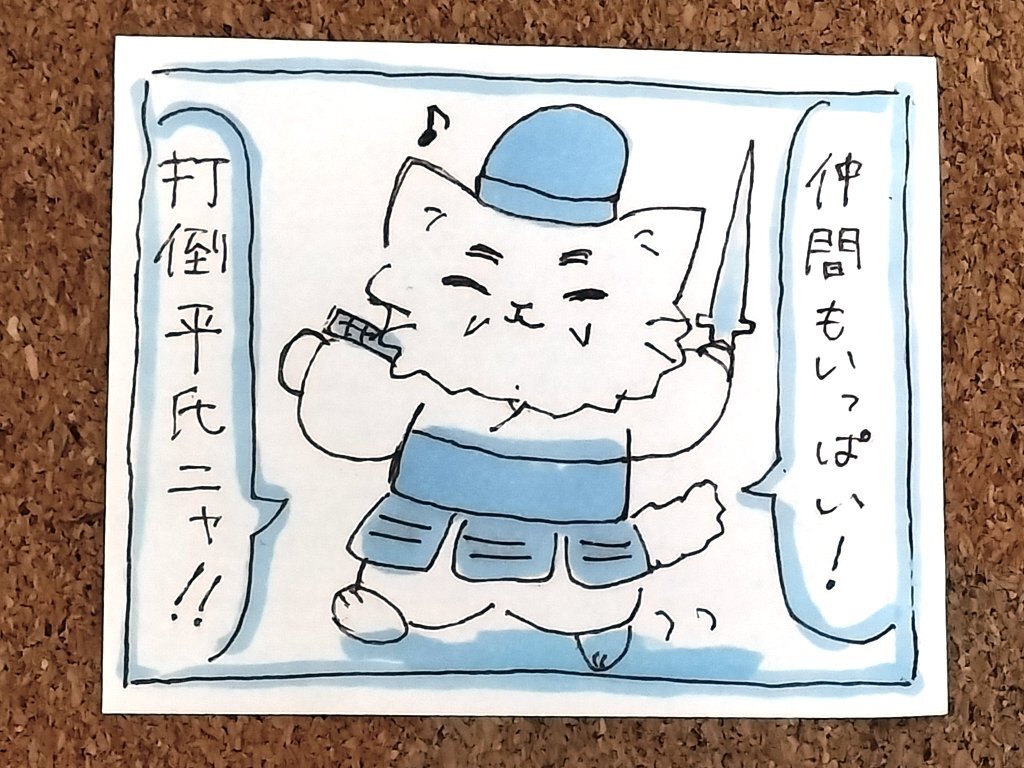 仲間もいっぱい！
打倒平氏ニャ!!